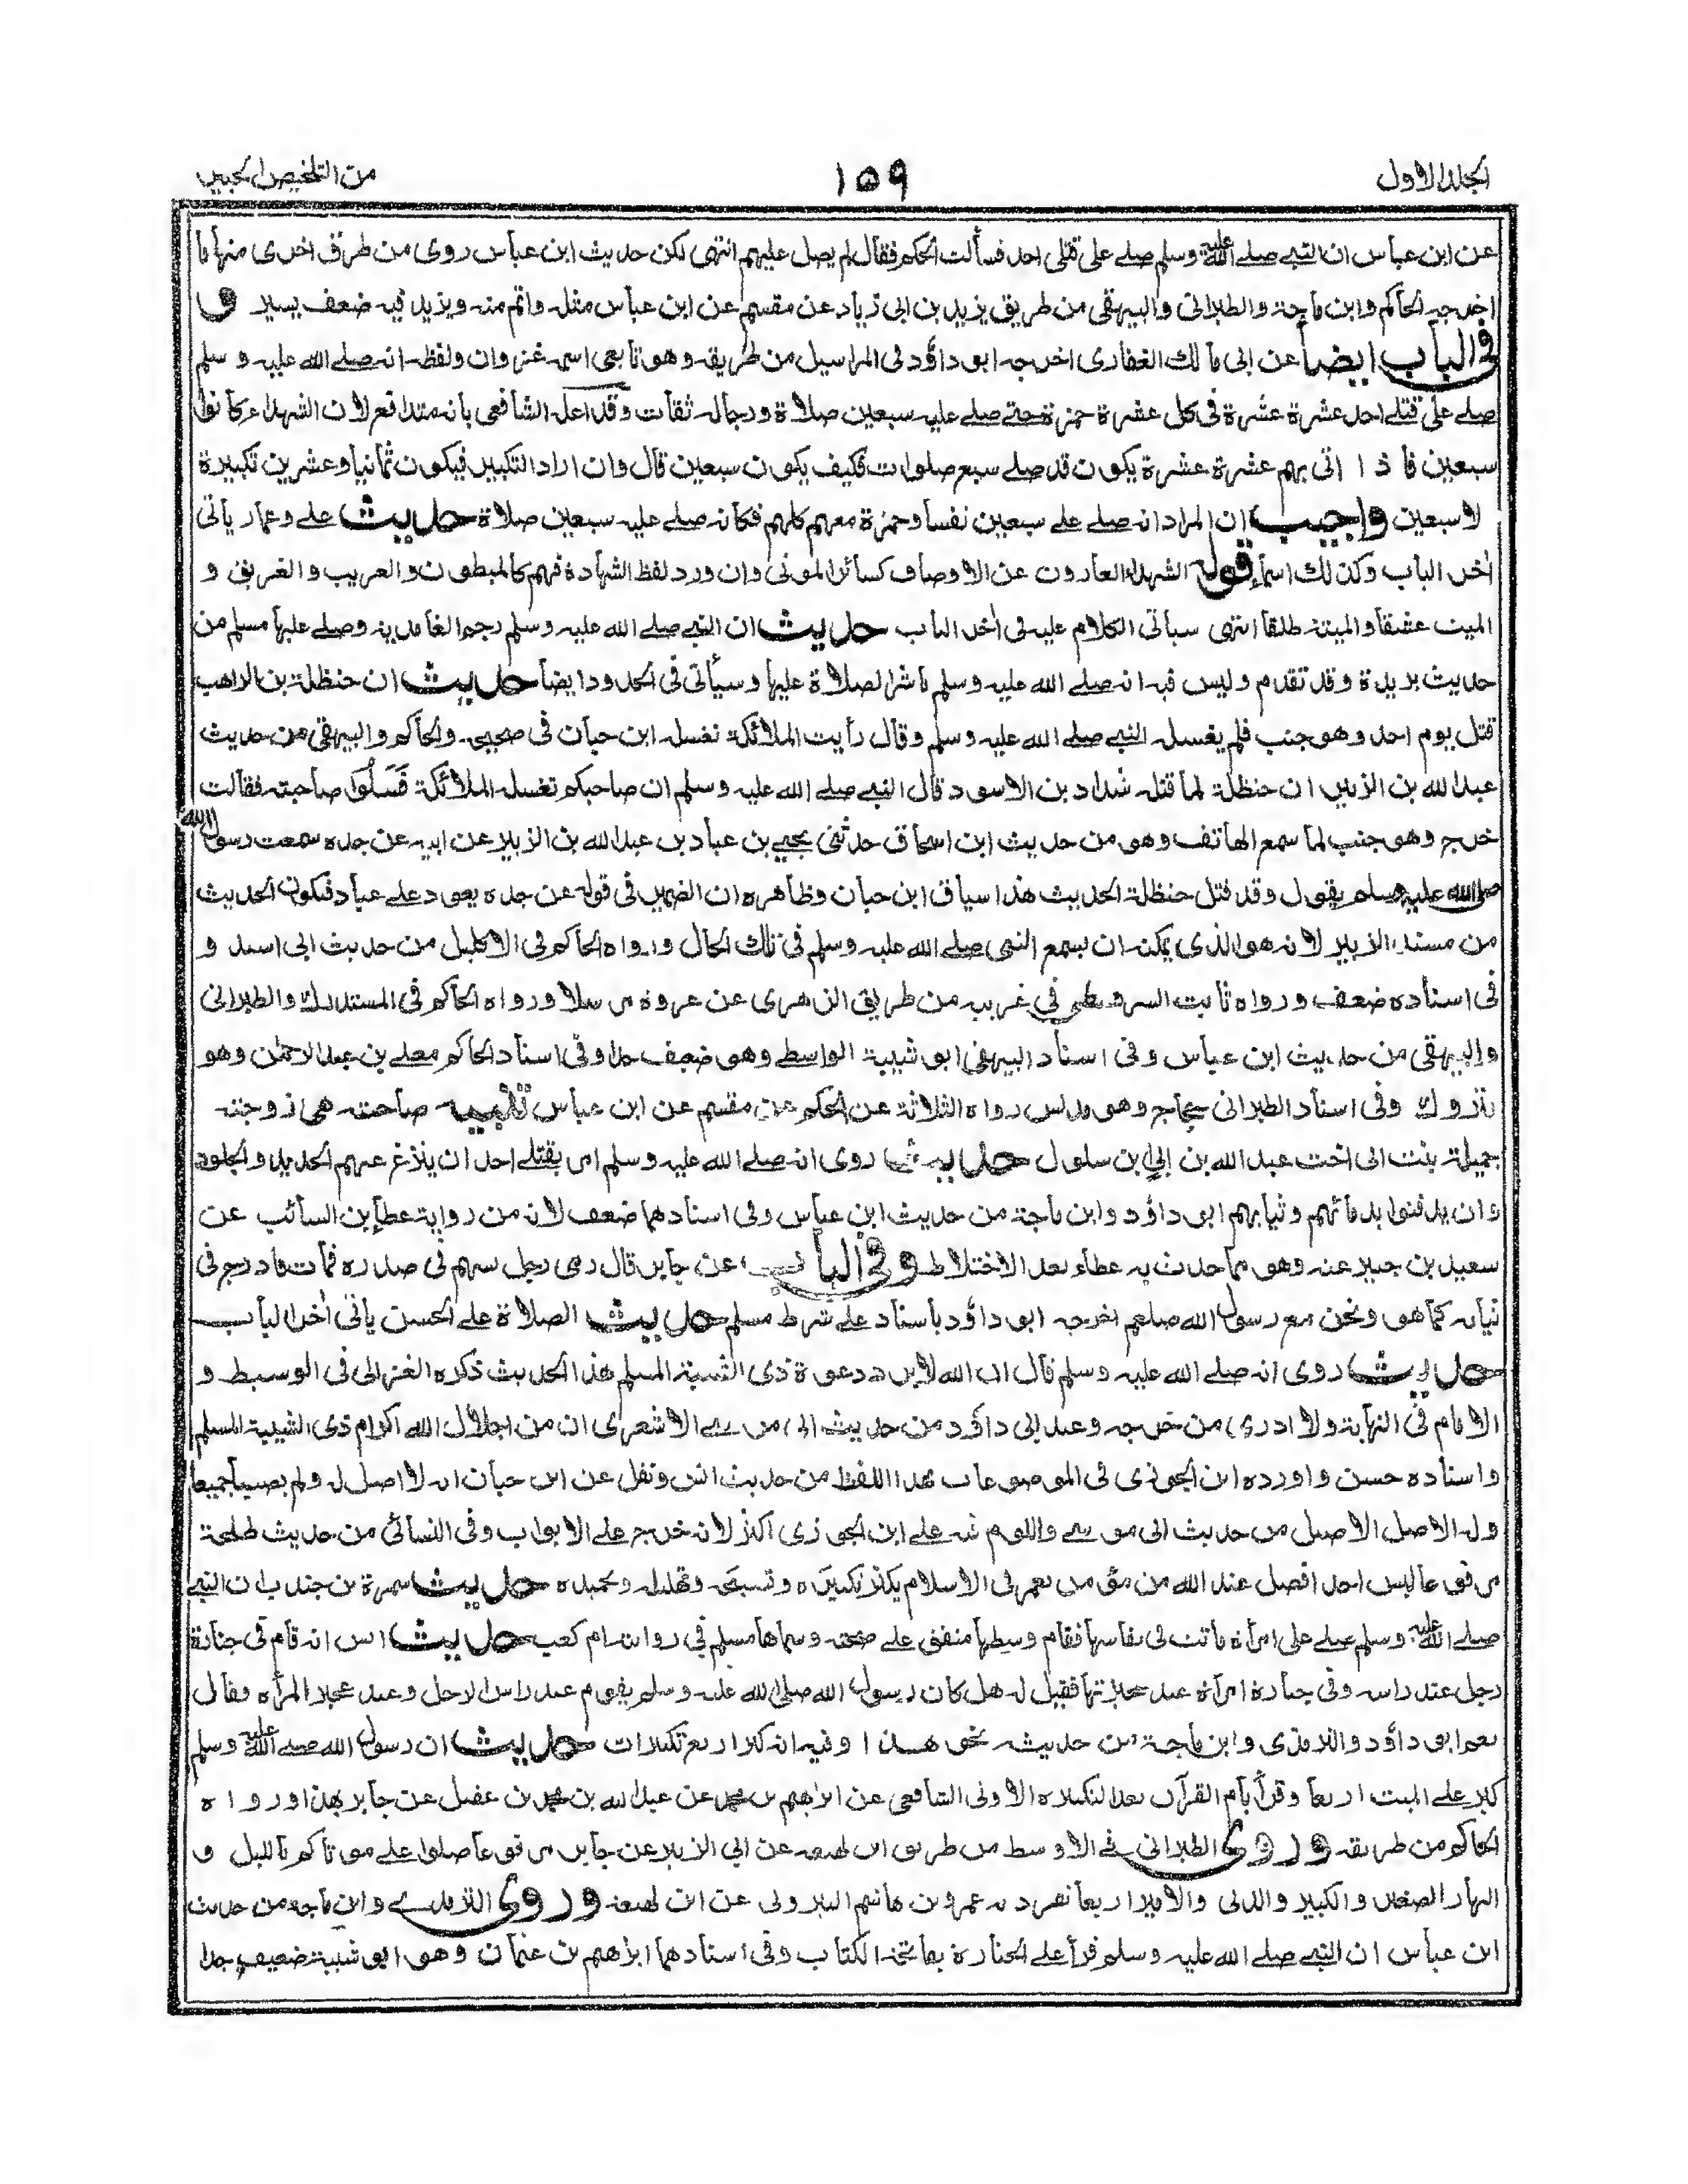 المجلد الاول
١٥٩
من التلخيص الحبير
عن ابن عباس ان النبے صلے الله عليه وسلم صلے على قتلى احد فسألت الحكم فقال لم يصل عليهم انتهى لكن حديث ابن عباس روى من طرق اخرى منها ما
اخرجه الحاكم وابن ماجة والطبرانى والبيهقى من طريق يزيد بن ابى زياد عن مقسم عن ابن عباس مثله واتم منه ويزيد فيه ضعف يسير و
فى الباب ايضا عن ابى مالك الغفارى اخرجه ابو داؤد فى المراسيل من طريقه وهو تابعى اسمه غزوان ولفظه انه صلے الله عليه وسلم
صلے على قتلے احد عشرة عشرة فى كل عشرة حمزة حتے صلے عليه سبعين صلاة ورجاله ثقات وقد اعله الشافعى بانه متدافع لان الشهداء كانوا
سبعين فاذا اتى بهم عشرة عشرة يكون قد صلے سبع صلوات فكيف يكون سبعين قال وان اراد التكبير فيكون ثمانيا وعشرين تكبيرة
لا سبعين واجيب ان المراد انه صلے علے سبعين نفسا وحمزة معهم كلهم فكانه صلے عليه سبعين صلاة حديث علے وعمار ياتى
اٰخر الباب وكذلك اسماء قوله الشهداء العارون عن الاوصاف كسائر الموتى وان ورد لفظ الشهادة فهم كالمبطون والغريب والغريق و
الميت عشقا والميتة طلقا انتهى سياتى الكلام عليه فى اٰخر الباب حديث ان النبے صلے الله عليه وسلم رجم الغامدية وصلے عليها مسلم من
حديث بريدة وقد تقدم وليس فيه انه صلے الله عليه وسلم باشر الصلاة عليها وسيأتى فى الحدود ايضا حديث ان حنظلة بن الراهب
قتل يوم احد وهو جنب فلم يغسله النبے صلے الله عليه وسلم وقال رأيت الملائكة تغسله ابن حبان فى صحيحه والحاكم والبيهقى من حديث
عبد الله بن الزبير ان حنظلة لما قتله شداد بن الاسود قال النبے صلے الله عليه وسلم ان صاحبكم تغسله الملائكة فَسَلُوا صاحبته فقالت
خرج وهو جنب لما سمع الهاتف وهو من حديث ابن اسحاق حدثنى يحيے بن عباد بن عبد الله بن الزبير عن ابيه عن جده سمعت رسول الله
صلى الله عليه وسلم يقول وقد قتل حنظلة الحديث هذا سياق ابن حبان وظاهره ان الضمير فى قوله عن جده يعود علے عباد فيكون الحديث
من مسند الزبير لانه هو الذى يمكنه ان يسمع النبى صلے الله عليه وسلم فى تلك الحال ورواه الحاكم فى الاكليل من حديث ابى اسيد و
فى اسناده ضعف ورواه ثابت السرقسطى فى غريبه من طريق الزهرى عن عروة مرسلا ورواه الحاكم فى المستدرك والطبرانى
والبيهقى من حديث ابن عباس وفى اسناد البيهقى ابو شيبة الواسطے وهو ضعيف جدا وفى اسناد الحاكم معلے بن عبد الرحمٰن وهو
متروك وفى اسناد الطبرانى حجاج وهو مدلس رواه الثلاثة عن الحكم عن مقسم عن ابن عباس تنبيه صاحبته هى زوجته
جميلة بنت ابى اخت عبد الله بن ابى ابن سلول حديث روى انه صلے الله عليه وسلم امر بقتلے احد ان ينزع عنهم الحديد والجلود
وان يدفنوا بدمائهم وثيابهم ابو داؤد وابن ماجة من حديث ابن عباس وفى اسنادهما ضعف لانه من رواية عطاء بن السائب عن
سعيد بن جبير عنه وهو مما حدث به عطاء بعد الاختلاط وفى الباب عن جابر قال رمى رجل بسهم فى صدره فمات فادرج فى
ثيابه كما هو ونحن مع رسول الله صلعم اخرجه ابو داؤد باسناد علے شرط مسلم حديث الصلاة علے الحسن ياتى اٰخر الباب
حديث روى انه صلے الله عليه وسلم قال ان الله لا يرد دعوة ذى الشيبة المسلم هذا الحديث ذكره الغزالى فى الوسيط و
الامام فى النهاية ولا ادرى من خرجه وعند ابى داؤد من حديث ابى موسے الاشعرى ان من اجلال الله اكرام ذى الشيبة المسلم
واسناده حسن واورده ابن الجوزى فى الموضوعات بهذا اللفظ من حديث انس ونقل عن ابن حبان انه لا اصل له ولم يصيبا جميعا
وله الاصل الاصيل من حديث ابى موسے واللوم فيه علے ابن الجوزى اكثر لانه خرج علے الابواب وفى النسائى من حديث طلحة
مرفوعا ليس احد افضل عند الله من مؤمن يعمر فى الاسلام يكثر تكبيره وتسبيحه وتهليله وتحميده حديث سمرة بن جندب ان النبے
صلے الله عليه وسلم صلے على امرأة ماتت فى نفاسها فقام وسطها متفق علے صحته وسماها مسلم فى روايته ام كعب حديث انس انه قام فى جنازة
رجل عند راسه وفى جنازة امرأة عند عجيزتها فقيل له هل كان رسول الله صلى الله عليه وسلم يقوم عند راس الرجل وعند عجيزة المرأة فقال
نعم ابو داؤد والترمذى وابن ماجة من حديثه نحو هذا وفيه انه كبر اربع تكبيرات حديث ان رسول الله صلے الله عليه وسلم
كبر علے الميت اربعا وقرأ بأم القرآن بعد التكبيرة الاولى الشافعى عن ابراهيم بن محمد عن عبد الله بن محمد بن عقيل عن جابر بهذا ورواه
الحاكم من طريقه وروى الطبرانى فے الاوسط من طريق ابن لهيعة عن ابى الزبير عن جابر مرفوعا صلوا علے موتاكم بالليل و
النهار الصغير والكبير والدنى والامير اربعا تفرد به عمرو بن هاشم البيروتى عن ابن لهيعة وروى الترمذے وابن ماجه من حديث
ابن عباس ان النبے صلے الله عليه وسلم قرأ علے الجنازة بفاتحة الكتاب وفى اسنادهما ابراهيم بن عثمان وهو ابو شيبة ضعيف جدا